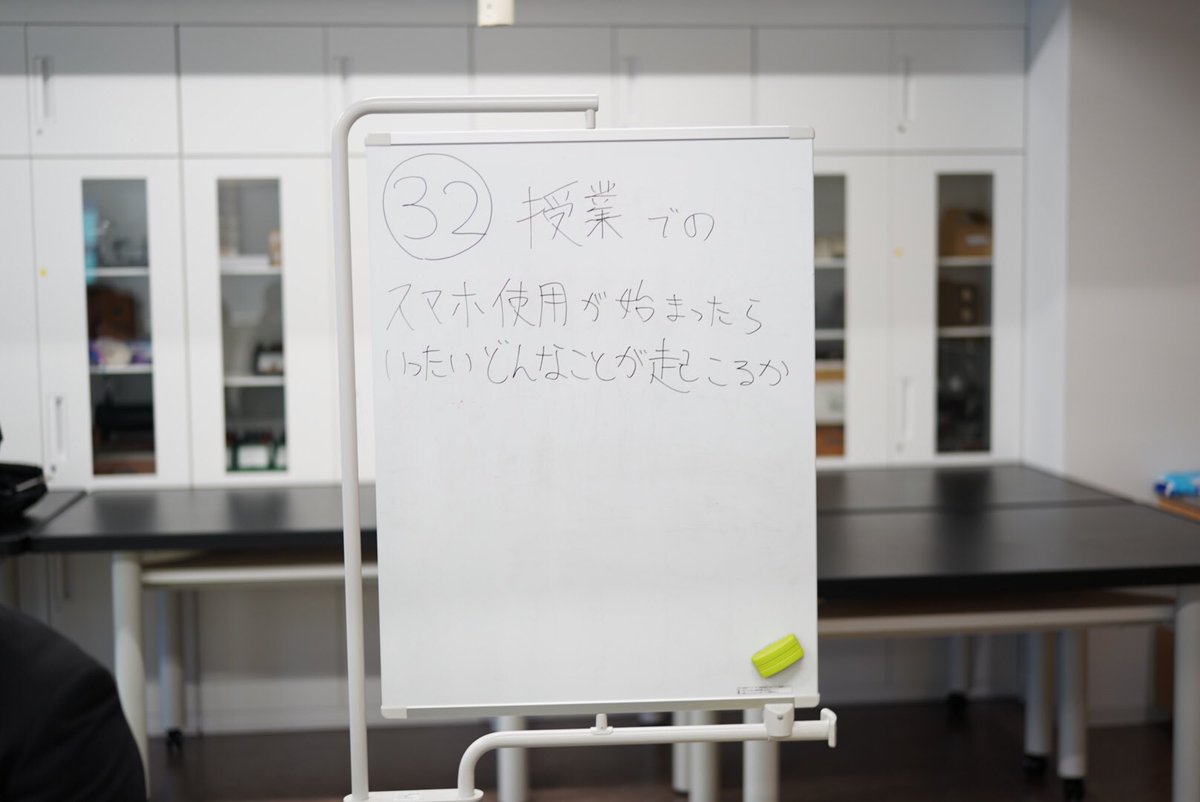 ㉜ 授業での
スマホ使用が始まったら
いったいどんなことが起こるか